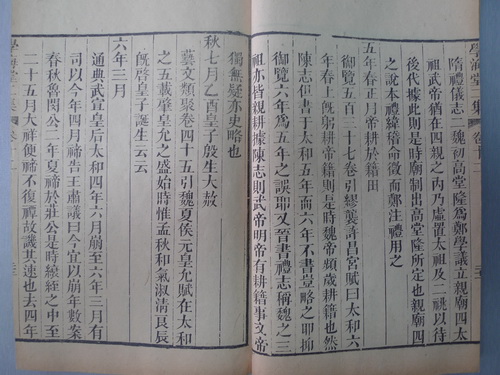 隋禮儀志一魏初高堂隆爲鄭學議立親廟四太
祖武帝猶在四親之內乃虛置太祖及二祧以待
後代據此則是時廟制出高堂隆所定也親廟四
之說本禮緯稽命徵而鄭注禮用之
五年春正月帝耕於籍田
御覽五百三十七卷引繆襲許昌宮賦曰太和六
年春上旣躬耕帝籍則是時魏帝頻歲耕籍也然
陳志但書于太和五年而六年不書豈略之耶抑
御覽六年爲五年之誤耶又晉書禮志稱魏之三
祖亦皆親耕據陳志則武帝明帝有耕籍事文帝
獨無疑亦史略也
秋七月乙酉皇子殷生大赦
藝文類聚卷四十五引魏夏侯元皇允賦在太和
之五載肇皇允之盛始時惟孟秋和氣淑清良辰
旣啓皇子誕生云云
六年三月
通典武宣皇后太和四年六月崩至六年三月有
司以今年四月禘告王肅議曰今宜以崩年數案
春秋魯閔公二年夏禘於莊公是時縗絰之中至
二十五月大祥便禘不復禫故譏其速也去四年
學海堂二集